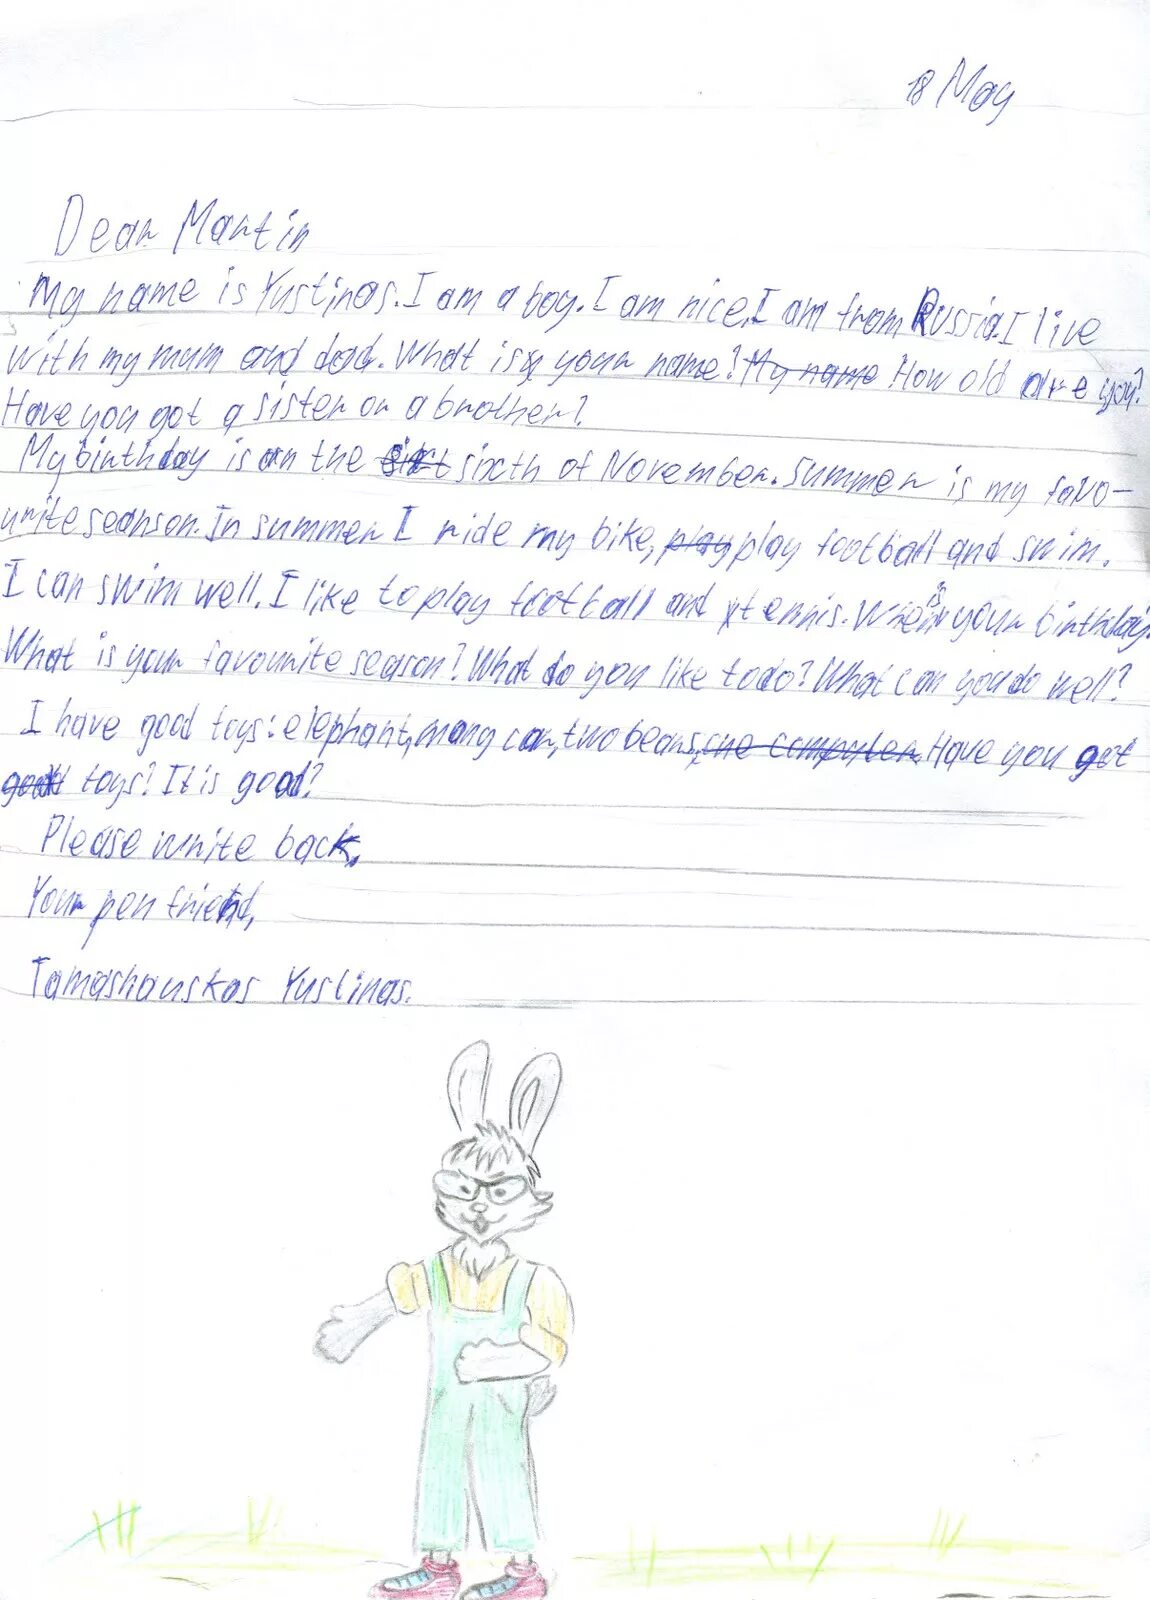 18 May
Dear Martin
My name is Yustinas. I am a boy. I am nice. I am from Russia. I live
with my mum and dad. What is your name? My name How old are you?
Have you got a sister or a brother?
My birthday is on the sixth of November. Summer is my favo-
urite seanson. In summer I ride my bike, play play football and swim.
I can swim well. I like to play football and tennis. When is your birthday.
What is your favourite season? What do you like to do? What can you do well?
I have good toys: elephant, many car, two bears, one computer. Have you got
good toys? It is good?
Please write back.
Your pen friend,
Tamashauskas Yustinas.